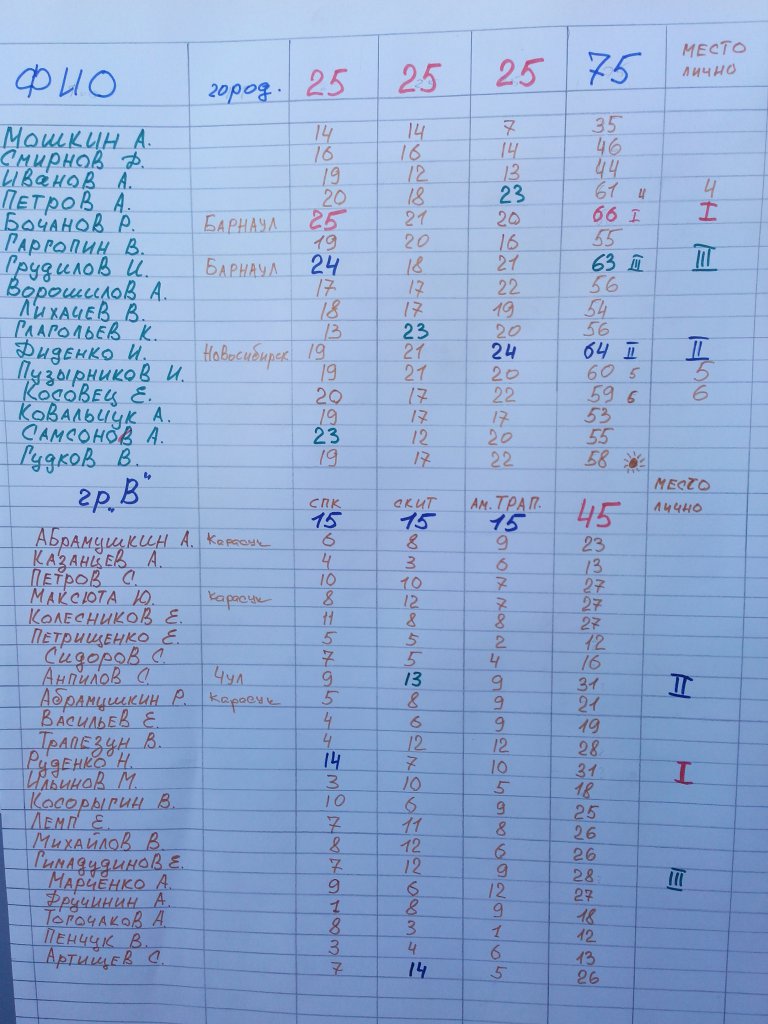 ФИО город. 25 25 25 75 МЕСТО ЛИЧНО
МОШКИН А. 14 14 7 35
СМИРНОВ Ф. 16 16 14 46
ИВАНОВ А. 19 12 13 44
ПЕТРОВ А. 20 18 23 61 4 4
БОЧАНОВ Р. БАРНАУЛ 25 21 20 66 I I
ГАРГОПИН В. 19 20 16 55
ГРУДИЛОВ И. БАРНАУЛ 24 18 21 63 III III
ВОРОШИЛОВ А. 17 17 22 56
ЛИХАЧЕВ В. 18 17 19 54
ГЛАГОЛЬЕВ К. 13 23 20 56
ФИДЕНКО И. НОВОСИБИРСК 19 21 24 64 II II
ПУЗЫРНИКОВ И. 19 21 20 60 5 5
КОСОВЕЦ Е. 20 17 22 59 6 6
КОВАЛЬЧУК А. 19 17 17 53
САМСОНОВ А. 23 12 20 55
ГУДКОВ В. 19 17 22 58
гр. „В" СПК СКИТ АМ. ТРАП. МЕСТО ЛИЧНО
15 15 15 45
АБРАМУШКИН А. Карасук 6 8 9 23
КАЗАНЦЕВ А. 4 3 6 13
ПЕТРОВ С. 10 10 7 27
МАКСЮТА Ю. Карасук 8 12 7 27
КОЛЕСНИКОВ Е. 11 8 8 27
ПЕТРИЩЕНКО Е. 5 5 2 12
СИДОРОВ С. 7 5 4 16
АНПИЛОВ С. ЧУЛ 9 13 9 31 II
АБРАМУШКИН Р. Карасук 5 8 9 21
ВАСИЛЬЕВ Е. 4 6 9 19
ТРАПЕЗУН В. 4 12 12 28
РУДЕНКО Н. 14 7 10 31 I
ИЛЬИНОВ М. 3 10 5 18
КОСОРЫГИН В. 10 6 9 25
ЛЕМП Е. 7 11 8 26
МИХАЙЛОВ В. 8 12 6 26
ГИМАДУДИНОВ Е. 7 12 9 28 III
МАРЧЕНКО А. 9 6 12 27
ФРУЧИНИН А. 1 8 9 18
ТОГОЧАКОВ А. 8 3 1 12
ПЕНЧУК В. 3 4 6 13
АРТИЩЕВ С. 7 14 5 26